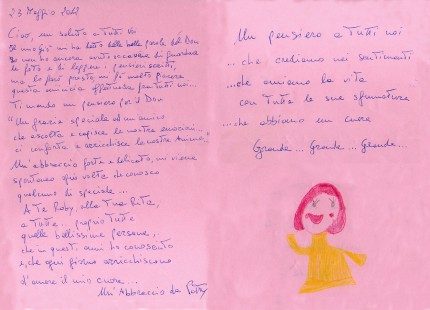 23 Maggio 2012
Ciao, un saluto a tutti voi
mi ha detto delle belle parole del Don
io non ho ancora avuto occasione di guardare
le foto e di leggere i pensieri scritti,
ma lo farò presto, mi fa molto piacere
questa amicizia affettuosa fra tutti noi...
Ti mando un pensiero per il Don
"Un grazie speciale ad un amico
che ascolta e capisce le nostre emozioni...
ci conforta e arricchisce le nostre Anime."
Un abbraccio forte e delicato, mi viene
spontaneo ogni volta che conosco
qualcuno di speciale...
A Te Roby, alla Tua Rita,
a tutte... proprio tutte
quelle bellissime persone,
che in questi anni ho conosciuto
e che ogni giorno arricchiscono
d'amore il mio cuore...
Un Abbraccio da
Un pensiero a tutti noi
...che crediamo nei sentimenti
...che amiamo la vita
con tutte le sue sfumature
...che abbiamo un cuore
Grande... Grande... Grande...